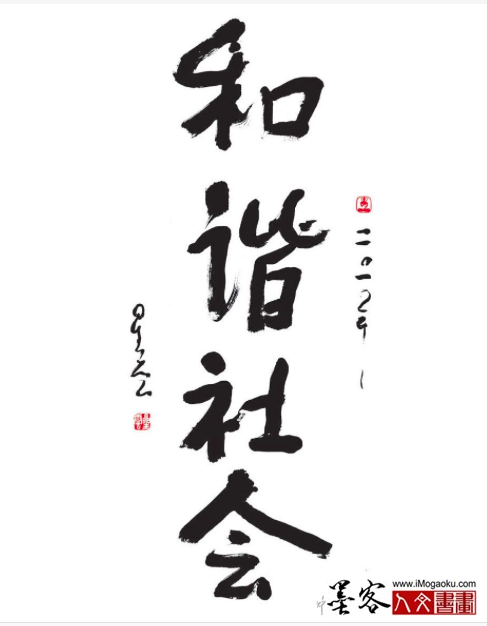 和谐社会
二〇一二年
星云
墨客
www.iMogaoku.com
人文書畫